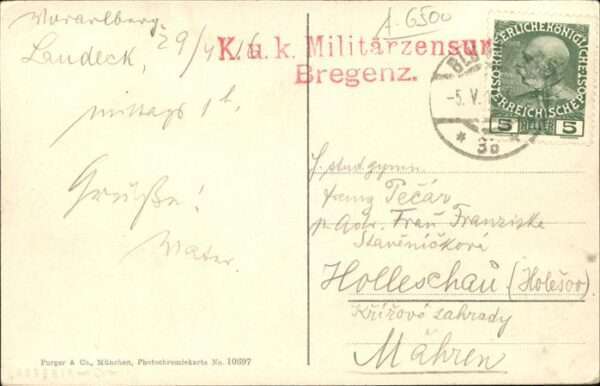 Vorarlberg.
Landeck, 29/4 16
mittags 1h,
Grüße!
Vater.
A-6500
K. u. k. Militärzensur
Bregenz.
BLU
-5. V.
* 3b *
KAISERLICHE KÖNIGLICHE
ÖSTERREICHISCHE POST
5 HELLER 5
H. stud. gymn.
Franz Pečár
p. Adr. Frau Franziska
Stavěničková
Holleschau (Holešov)
Křížové zahrady
Mähren
Purger & Co., München, Photochromiekarte No. 10697